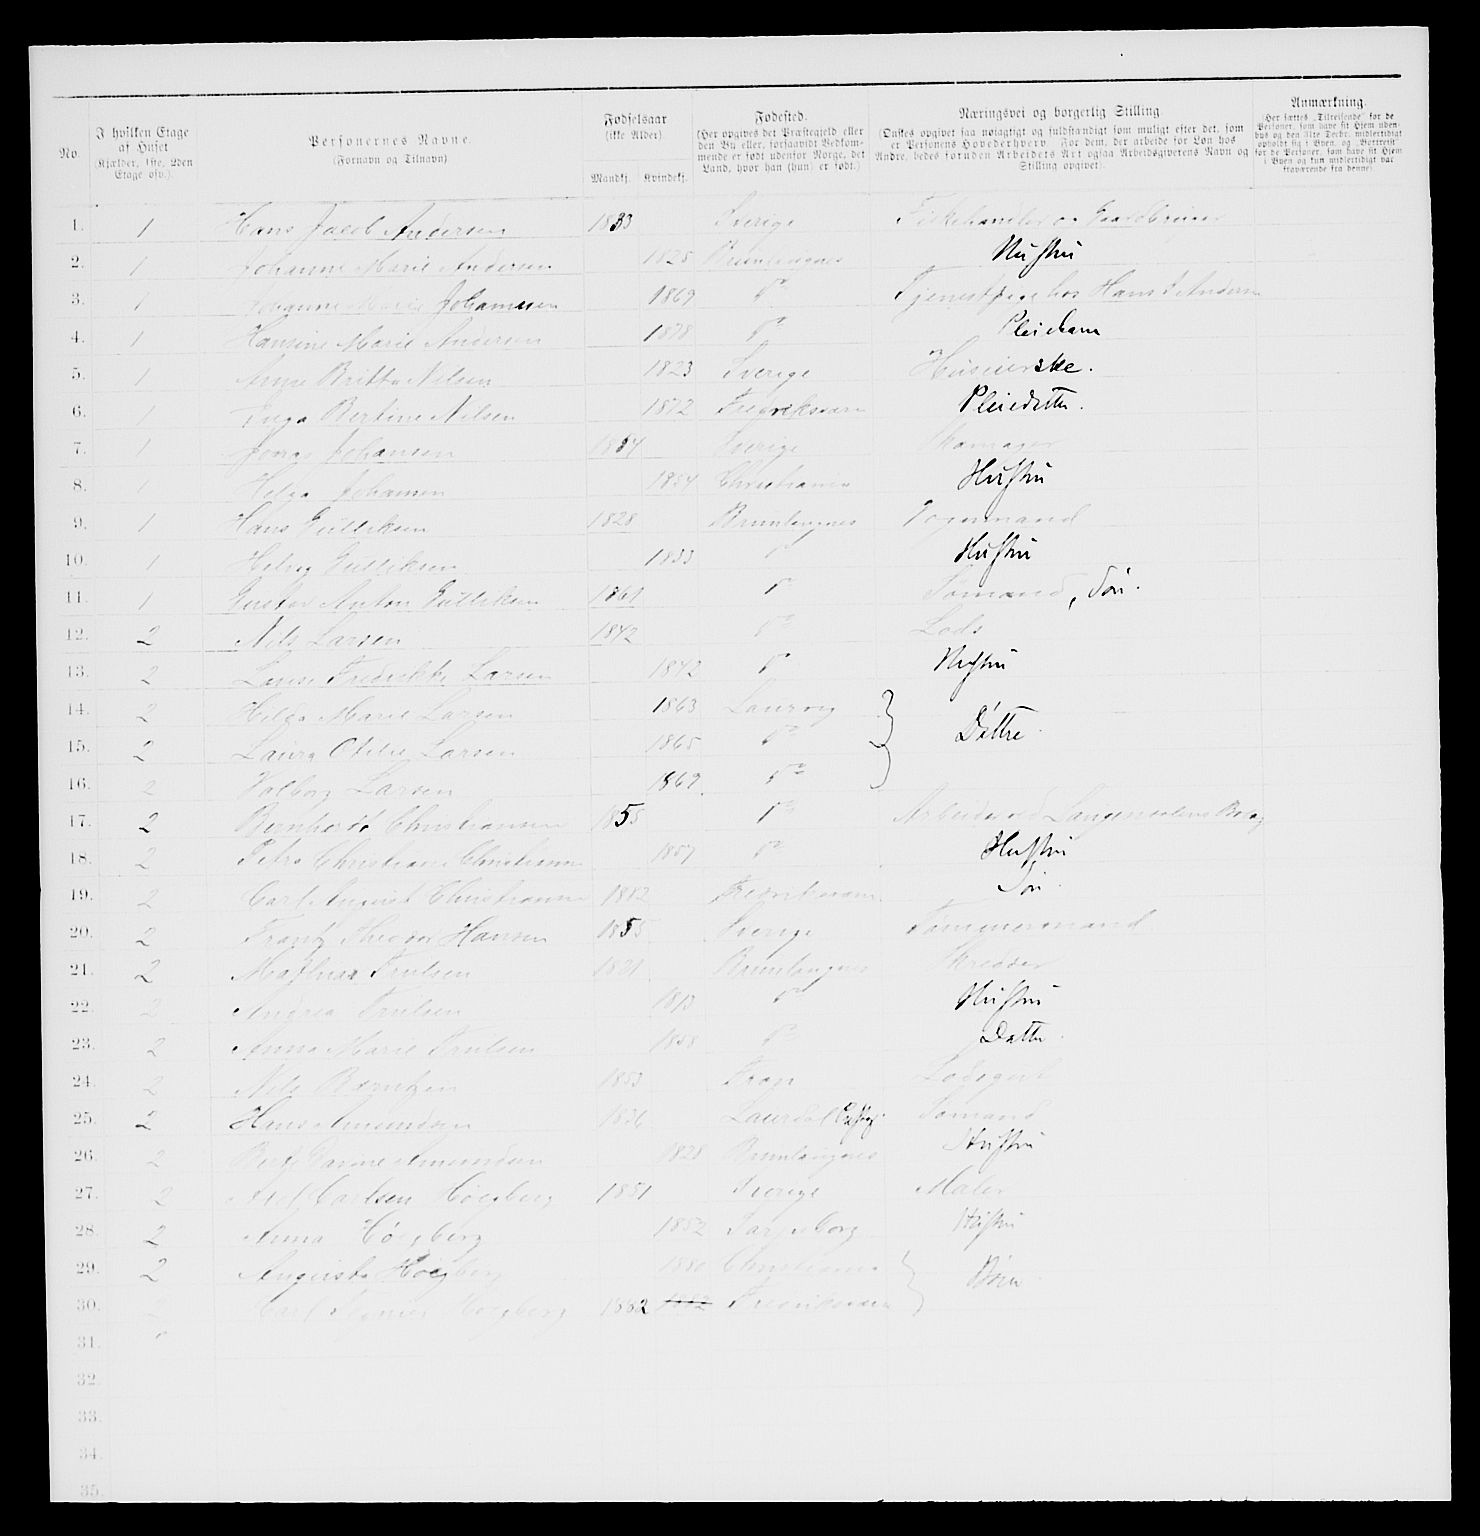 No.
I hvilken Etage af Huset (Kjælder, 1ste, 2den Etage osv.).
Personernes Navne. (Fornavn og Tilnavn)
Fødselsaar (ikke Alder). Mandkj. Kvindekj.
Fødested. (Her opgives det Præstegjeld eller den By eller, forsaavidt Vedkommende er født udenfor Norge, det Land, hvor han (hun) er født.)
Næringsvei og borgerlig Stilling. (Ønskes opgivet saa nøiagtigt og fuldstændigt som muligt efter det, som er Personens Hovederhverv. For dem, der arbeide for Løn hos Andre, bedes foruden Arbeidets Art ogsaa Arbeidsgiverens Navn og Stilling opgivet).
Anmærkning. (Her sættes „Tilreisende" for de Personer, som have sit Hjem udenbys og den 31te Decbr. midlertidigt opholdt sig i Byen, og „Bortreist" for de Personer, som have sit Hjem i Byen og kun midlertidigt var fraværende fra denne).
1. 1 Hans Jacob Andersen 1833 Sverige Fiskehandler og Gaardbruger
2. 1 Johanne Marie Andersen 1825 Brunlangnes Hustru
3. 1 Marie Johannesen 1869 do Tjenestpige hos Hans J Andersen
4. 1 Hansine Marie Andersen 1878 do Pleiebarn
5. 1 Anne Britta Nilsen 1823 Sverige Husierske.
6. 1 Inga Bertine Nilsen 1872 Fredriksværn Pleiedatter.
7. 1 Johansen 1854 Sverige Skomager
8. 1 Helga Johansen 1854 Christiania Hustru
9. 1 Hans Gulliksen 1828 Brunlangnes Vognmand
10. 1 Helvig Gulliksen 1833 do Hustru
11. 1 Gustav Anton Gulliksen 1861 do Sømand, Søn.
12. 2 Nils Larsen 1842 do Lods
13. 2 Lovise Fredrikke Larsen 1842 do Hustru
14. 2 Hilda Marie Larsen 1863 Laurvig
15. 2 Laura Otilie Larsen 1865 do Døttre.
16. 2 Valborg Larsen 1869. do
17. 2 Bernhardt Christiansen 1855 do Arbeider ved
18. 2 Petra Christiane Christiansen 1857 do Hustru
19. 2 Carl August Christiansen 1882 Fredriksværn Søn.
20. 2 Frantz Theodor Hansen 1855 Sverige Tømmermand
21. 2 Mathias Trulsen 1821 Brunlangnes Skredder
22. 2 Andrea Trulsen 1813 do Hustru
23. 2 Anna Marie Trulsen 1858 do Datter.
24. 2 Nils Berntzen 1853 Lodsgut
25. 2 Hans Amundsen 1836 Laurdal Sømand
26. 2 Amundsen 1828 Brunlangnes Hustru
27. 2 Carlsen Høegberg 1851 Sverige Maler
28. 2 Anna Høegberg 1852 Sarpsborg Hustru
29. 2 Augusta Høegberg 1880 Christiania Børn.
30. 2 Carl Høegberg 1882 1882 Fredriksværn
31.
32.
33.
34.
35.